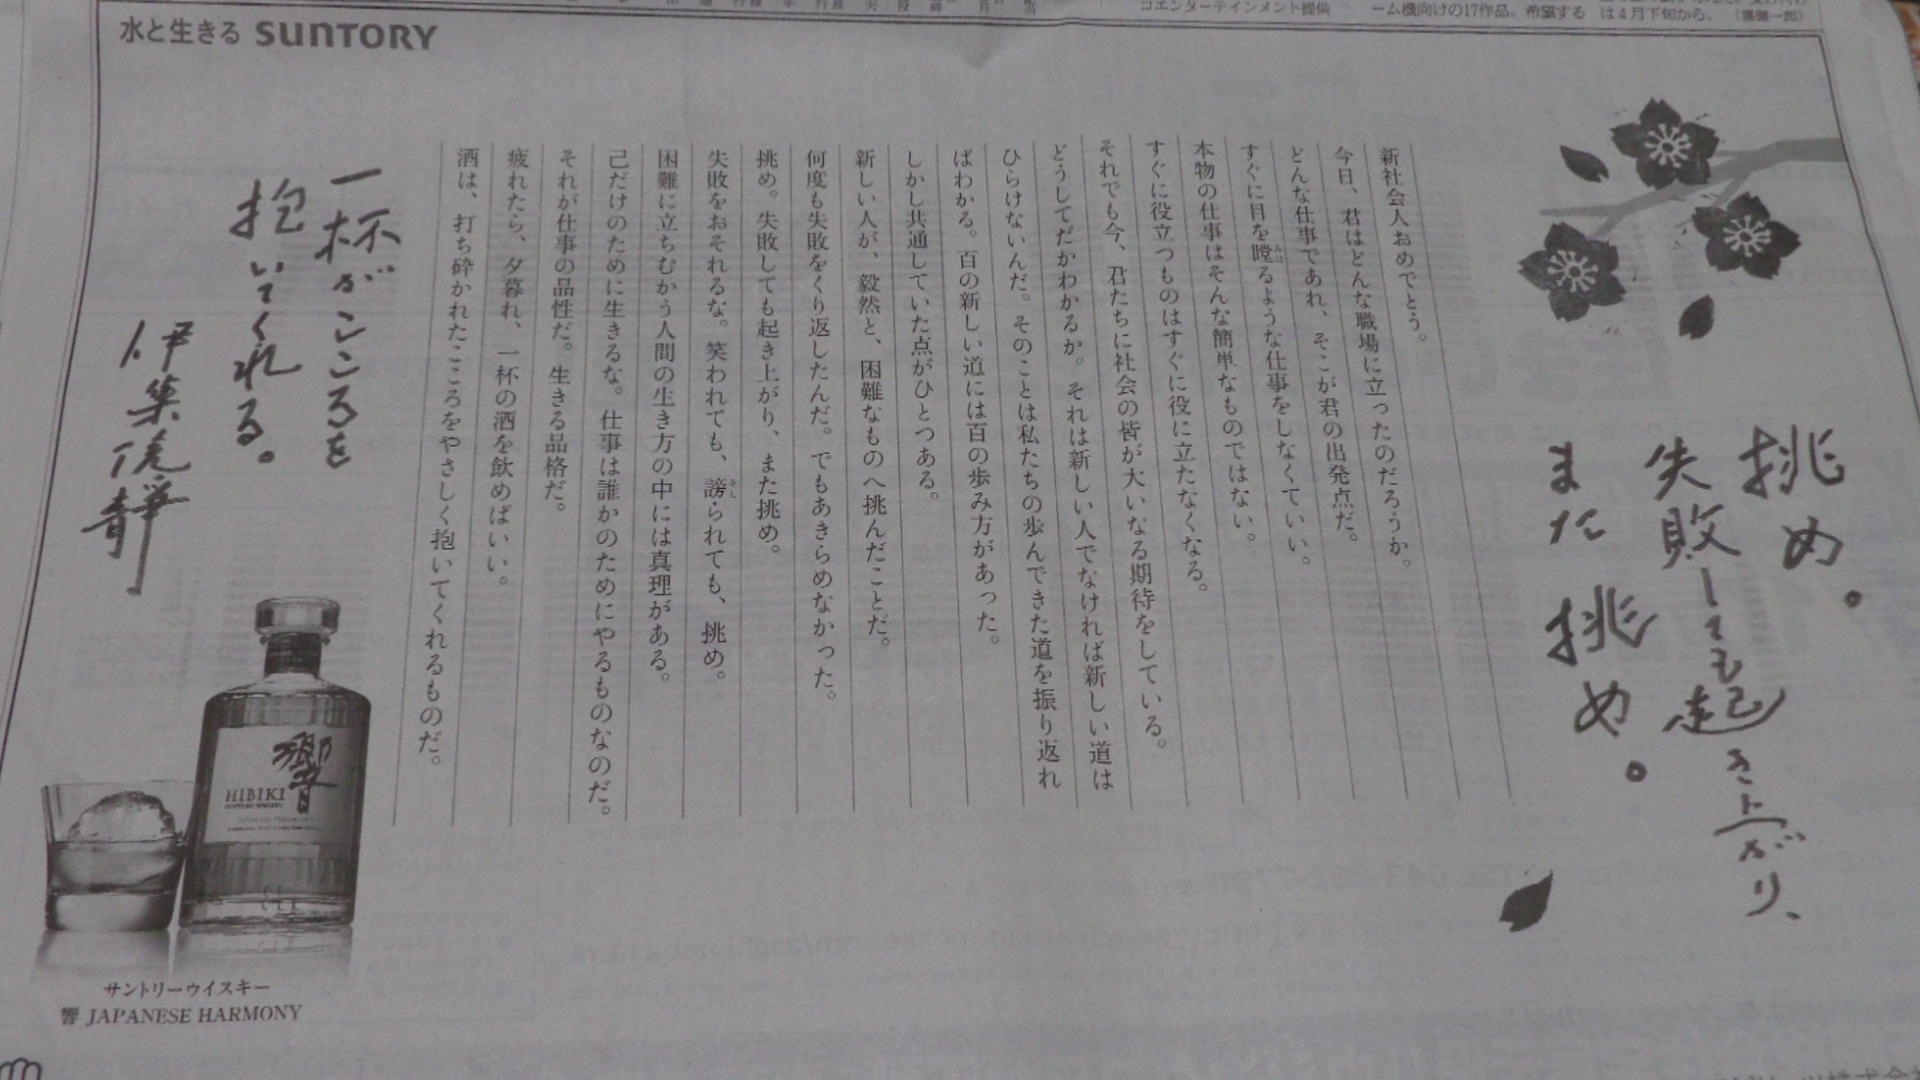 コエンターテインメント提供
ーム機向けの17作品。希望する
は4月下旬から。
水と生きる SUNTORY
挑め。
失敗しても起き上がり、
また挑め。
新社会人おめでとう。
今日、君はどんな職場に立ったのだろうか。
どんな仕事であれ、そこが君の出発点だ。
すぐに目を瞠るような仕事をしなくていい。
本物の仕事はそんな簡単なものではない。
すぐに役立つものはすぐに役に立たなくなる。
それでも今、君たちに社会の皆が大いなる期待をしている。
どうしてだかわかるか。それは新しい人でなければ新しい道は
ひらけないんだ。そのことは私たちの歩んできた道を振り返れ
ばわかる。百の新しい道には百の歩み方があった。
しかし共通していた点がひとつある。
新しい人が、毅然と、困難なものへ挑んだことだ。
何度も失敗をくり返したんだ。でもあきらめなかった。
挑め。失敗しても起き上がり、また挑め。
失敗をおそれるな。笑われても、謗られても、挑め。
困難に立ちむかう人間の生き方の中には真理がある。
己だけのために生きるな。仕事は誰かのためにやるものなのだ。
それが仕事の品性だ。生きる品格だ。
疲れたら、夕暮れ、一杯の酒を飲めばいい。
酒は、打ち砕かれたこころをやさしく抱いてくれるものだ。
一杯がこころを
抱いてくれる。
伊集院静
響
HIBIKI
サントリーウイスキー
響 JAPANESE HARMONY